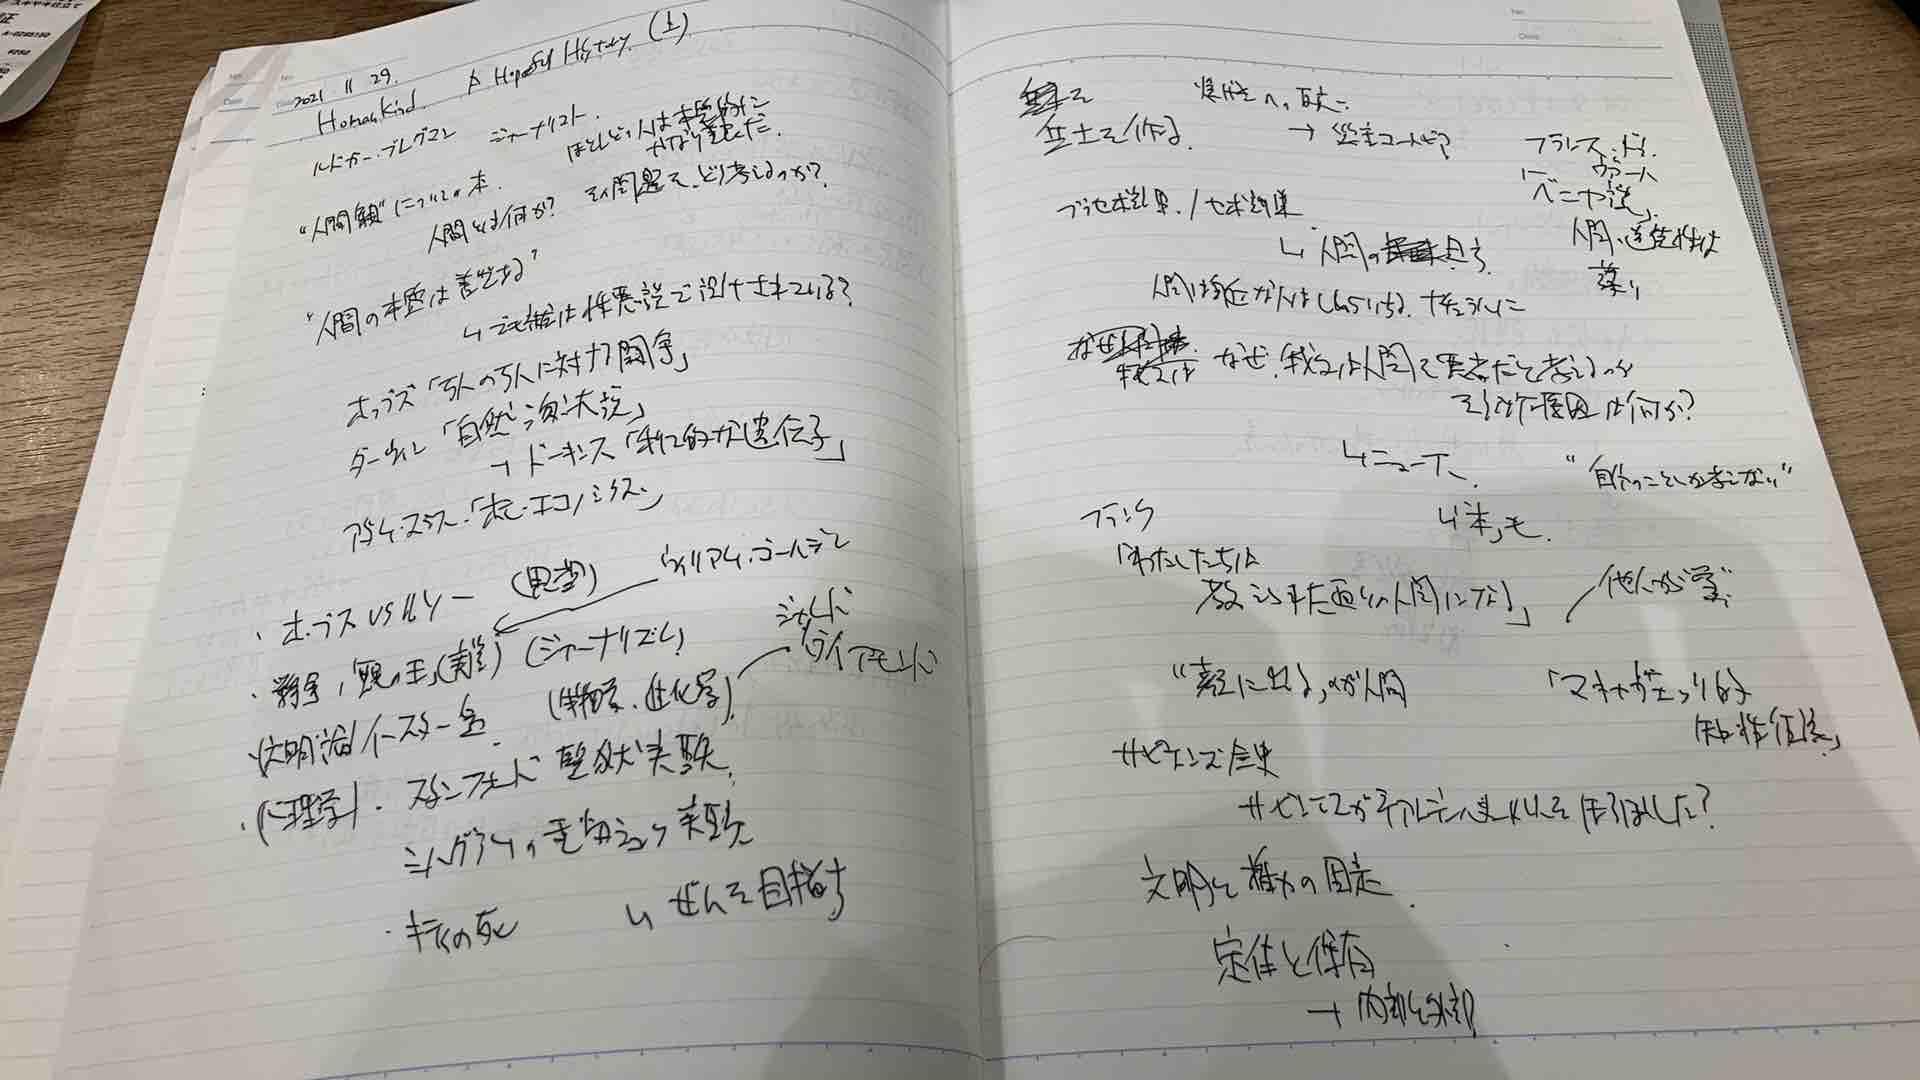 2021 11 29.
Humankind. A Hopeful History. (上)
ルトガー・ブレグマン ジャーナリスト.
ほとんどの人は本質的に
かなり善だ.
"人間観"についての本.
人間とは何か? その問題を、どう考えるのか?
"人間の本質は善である"
↳ 組織は性悪説で設計されている?
ホッブズ「万人の万人に対する闘争」
ダーウィン「自然淘汰説」
→ ドーキンス「利己的な遺伝子」
アダム・スミス・「ホモ・エコノミクス」
・ホッブス VS ルソー (思想) ウィリアム・ゴールデン
・戦争,「蠅の王」 (ジャーナリズム) ジャレド
ダイアモンド
・(文明論) イースター島 進化学)
・(心理学)・スタンフォード監獄実験.
ミルグラムの電気ショック実験
・キティの死 ↳ ぜんを目指す
を
共土を作る.
→
フランス・ド・
ヴァール
「ベニヤ説」
人間の道徳性は
薄い
プラセボ効果. / ノセボ効果
↳ 人間の
なぜ、我々は人間を悪者だと考えるのか
その原因は何か?
↳ ニュース、 "自分のことしか考えない"
↳「本」も.
フランク
「わたしたちは
教えられた通りの人間になる」
他人から学ぶ
"表に出る"のが人間 「マキャベリ的
知性仮説」
サピエンス全史
サピエンスがネアンデルタール人をほろぼした?
文明と権力の固定.
定住と保有
→ 内部と外部